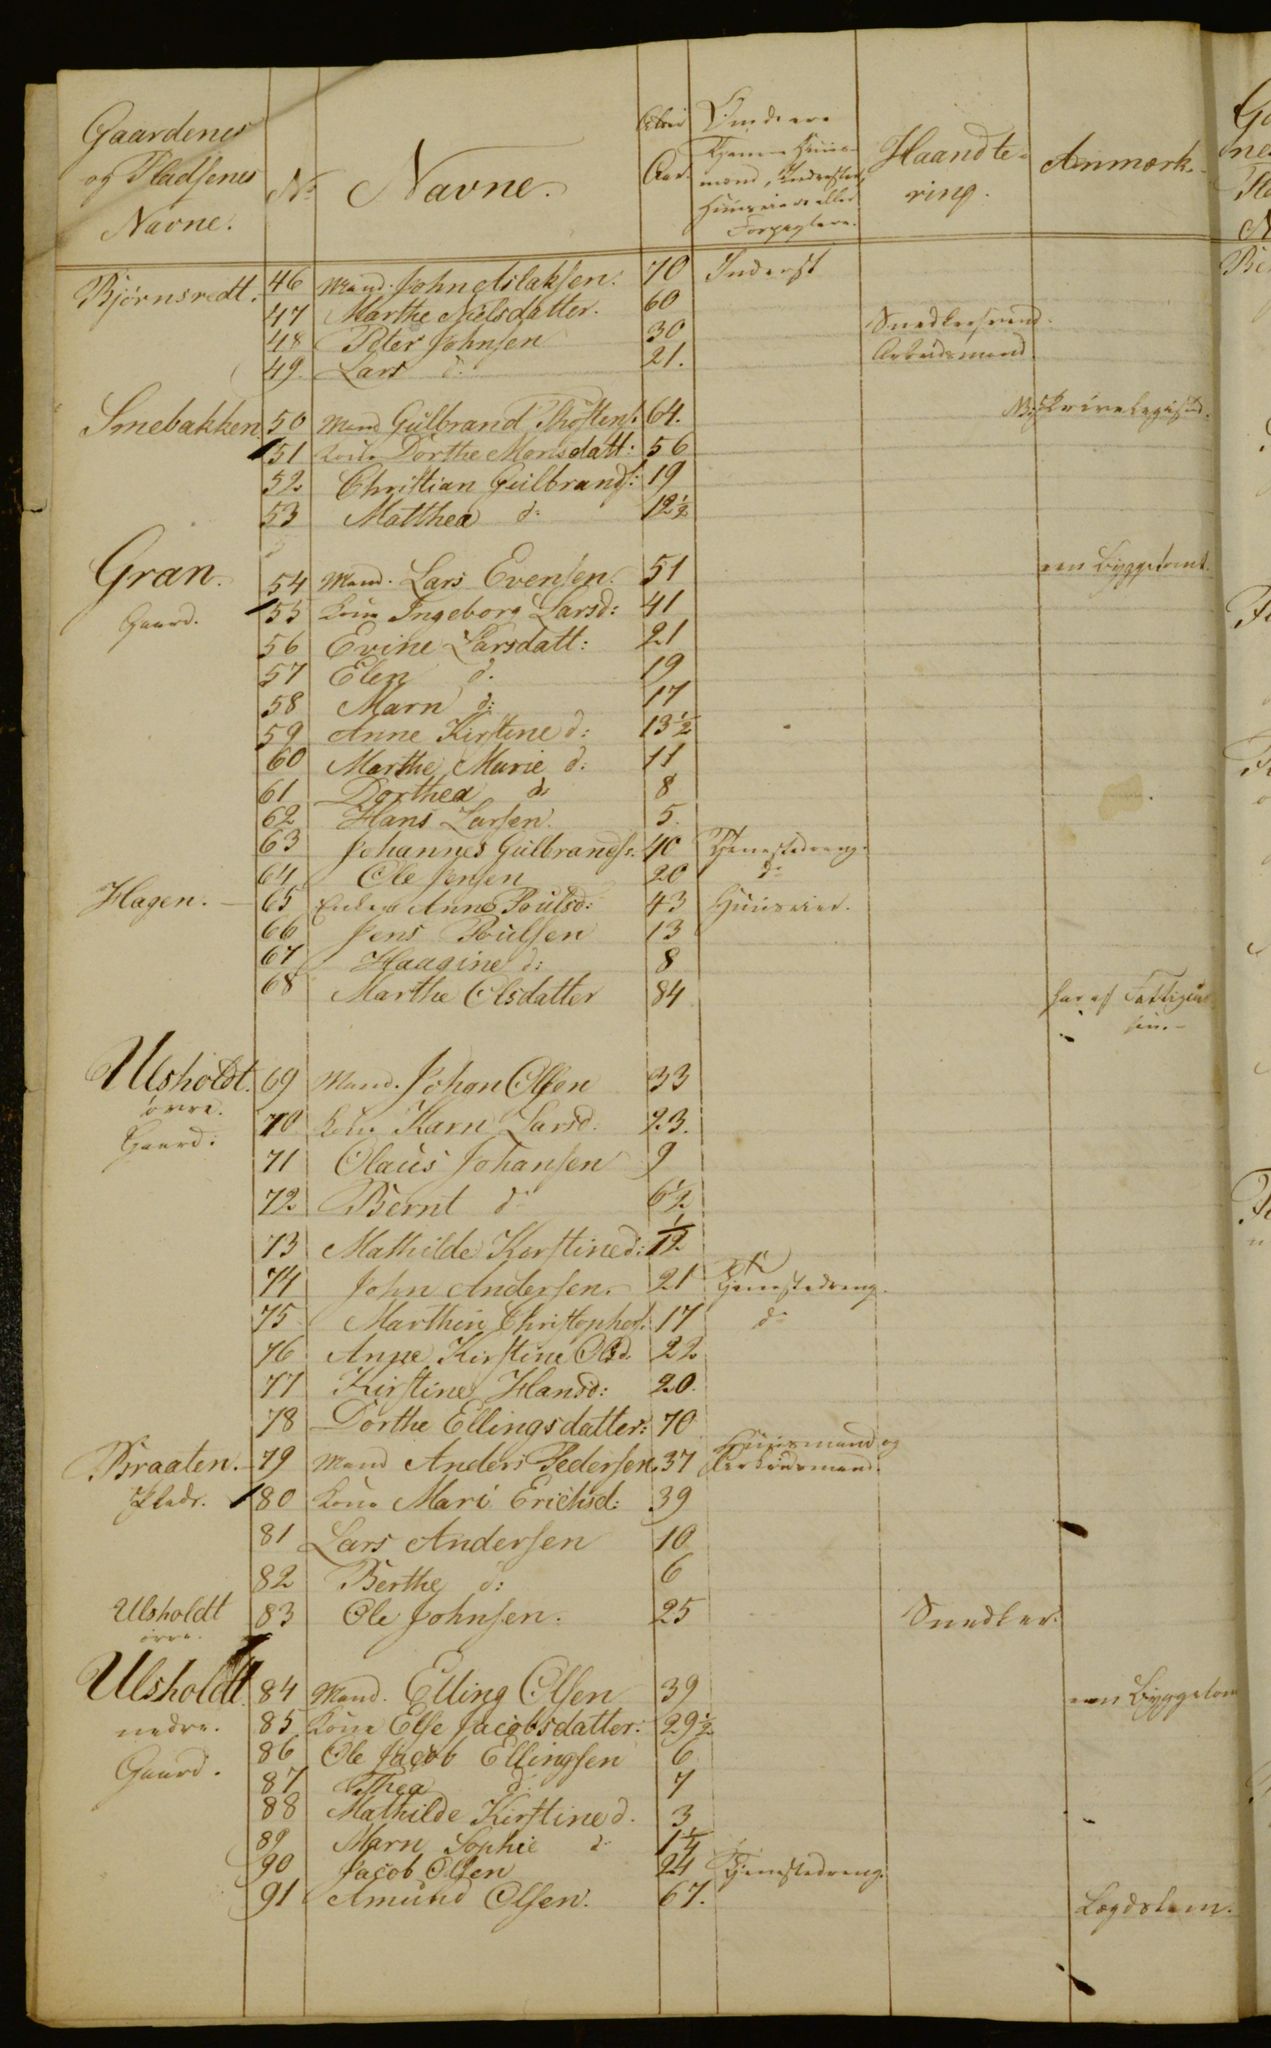 Gaardenes
og Pladsenes
Navne.
No
Navne.
Alder
Aar.
Om de ere
Huus-
mænd, Inderster,
Huuseiere eller
Forpagtere.
Haandte-
ring.
Anmærk.
Bjørnsredt. 46 Mand. John Aslaksen. 70 Inderst
47 Marthe Nielsdatter. 60
48 Peter Johnsen 30 Snedkersvend.
49 Lars d: 21. Arbeidsmand
Smebakken 50 Mand Gulbrand Thostens: 64.
51 Kone Dorthe Monsdatt: 56
52 Christian Gulbrands: 19
53 Matthea d: 12½
Gran. 54 Mand. Lars Evensen 51
Gaard. 55 Kone Ingeborg Larsd: 41
56 Evine Larsdatt: 21
57 Elen d. 19
58 Marn d: 17
59 Anne Kirstine d: 13½
60 Marthe Marie d. 11
61 Dorthea d: 8
62 Hans Larsen. 5.
63 Johannes Gulbrands: 40 Tjenestedreng.
64 Ole Jensen 20 d:
Hagen. 65 Enken Anne Poulsd: 43 Huuseier.
66 Jens Poulsen 13
67 Haagine d: 8
68 Marthe Olsdatter 84 har af Fattigcas-
sen.
Ulsholdt. 69 Mand. Johan Olsen 33
øvre. 70 Kone Karn Larsd. 23.
Gaard.
71 Olaus Johansen 9
72 Bernt d: 6½
73 Mathilde Kerstine d: 1/12
74 John Andersen. 21 Tjenestedreng.
75 Marthin Christophers: 17 d:
76 Anne Kirstine Olsd. 22
77 Kirstine Hansd: 20.
78 Dorthe Ellingsdatter: 70
Braaten. 79 Mand Anders Pedersen. 37 Huusmand og
Arbeidsmand.
Plads. 80 Kone Mari Erichsd: 39
81 Lars Andersen 10
82 Berthe d: 6
Ulsholdt 83 Ole Johnsen. 25 Snedker.
øvre.
Ulsholdt 84 Mand. Elling Olsen 39
nedre. 85 Kone Else Jacobsdatter. 29½
Gaard. 86 Ole Jacob Ellingsen 6
87 Thea d: 7
88 Mathilde Kirstine d. 3
89 Marn Sophie d: 1¼
90 Jacob Olsen 24 Tjenestedreng.
91 Amund Olsen. 67. Lægdslem.